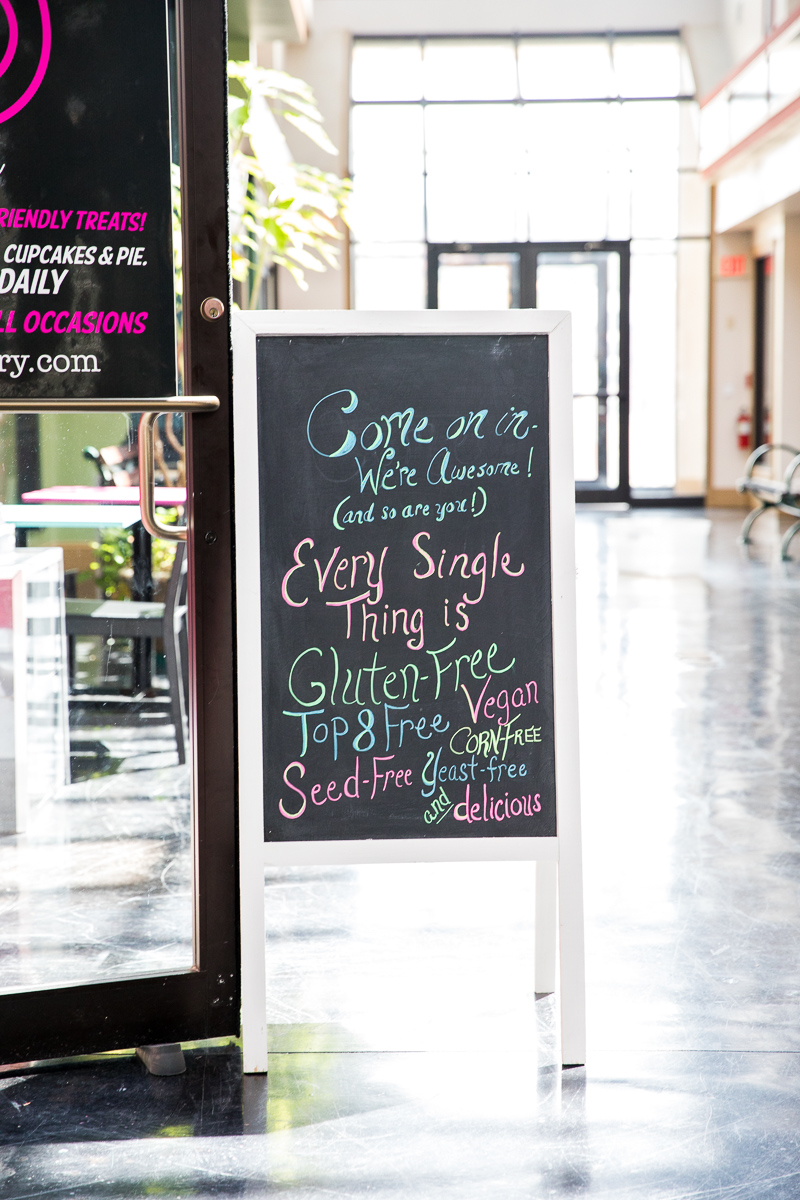 FRIENDLY TREATS!
CUPCAKES & PIE.
DAILY
ALL OCCASIONS
ry.com
Come on in-
We're Awesome!
(and so are you!)
Every Single
Thing is
Gluten-Free
Vegan
Top 8 Free
CORN-FREE
Seed-Free Yeast-free
and delicious